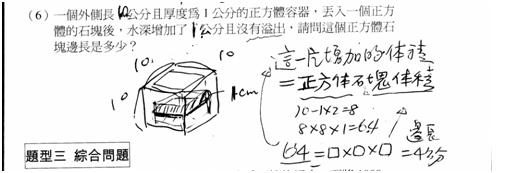 (6) 一個外側長10公分且厚度為1公分的正方體容器,丟入一個正方
體的石塊後,水深增加了1公分且沒有溢出,請問這個正方體石
塊邊長是多少?
這一片增加的体積
=正方体石塊体積
10
10
10
1cm
10-1×2=8
8×8×1=64
邊長
64=□×□×□=4公分
題型三 綜合問題